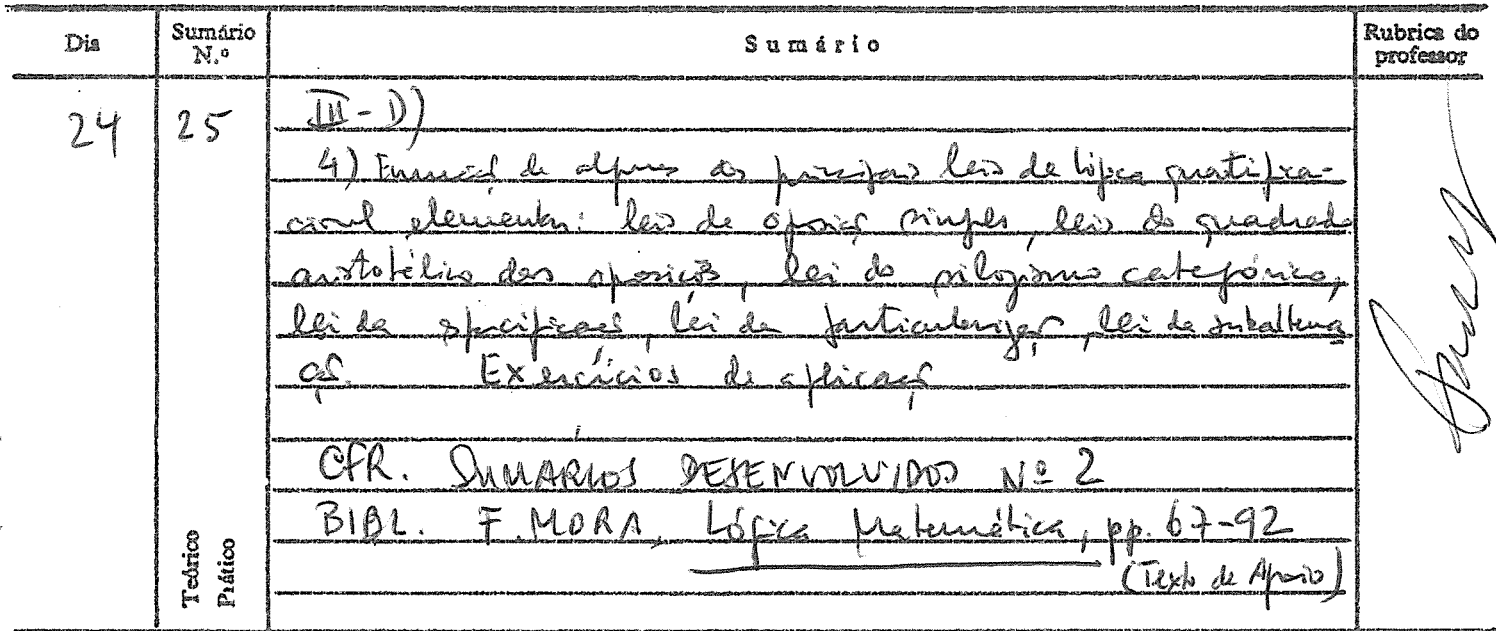 Dia
Sumário N.º
Sumário
Rubrica do professor
24
25
III - D)
4) Enunciado de algumas das principais leis de lógica quantifica-
cional elementar: leis de oposição simples, leis do quadrado
aristotélico das oposições, lei do silogismo categórico,
lei da especificação, lei da particularização, lei da subalterna
ção. Exercícios de aplicação
CFR. SUMÁRIOS DESENVOLVIDOS Nº 2
BIBL. F. MORA, Lógica Matemática, pp. 67-92
(Texto de Apoio)
Teórico
Prático